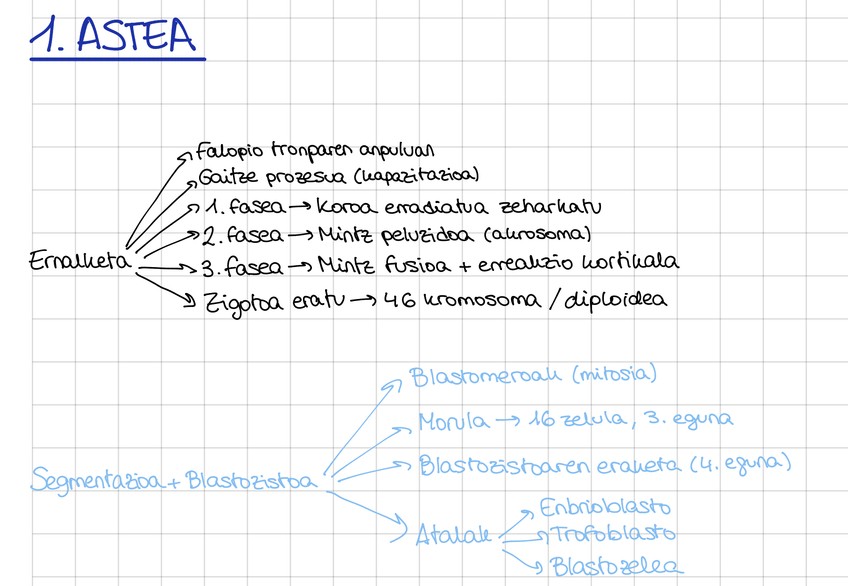 1. ASTEA
Falopio tronparen anpuluan
Gaitze prozesua (kapazitazioa)
1. fasea → Koroa erradiatua zeharkatu
2. fasea → Mintz peluzidoa (akrosoma)
Ernalketa
3. fasea → Mintz fusioa + erreakzio kortikala
Zigotoa eratu → 46 kromosoma / diploidea
Blastomeroak (mitosia)
Morula → 16 zelula, 3. eguna
Blastozistoaren eraketa (4. eguna)
Segmentazioa + Blastozistoa
Enbrioblasto
Atalak
Trofoblasto
Blastozelea